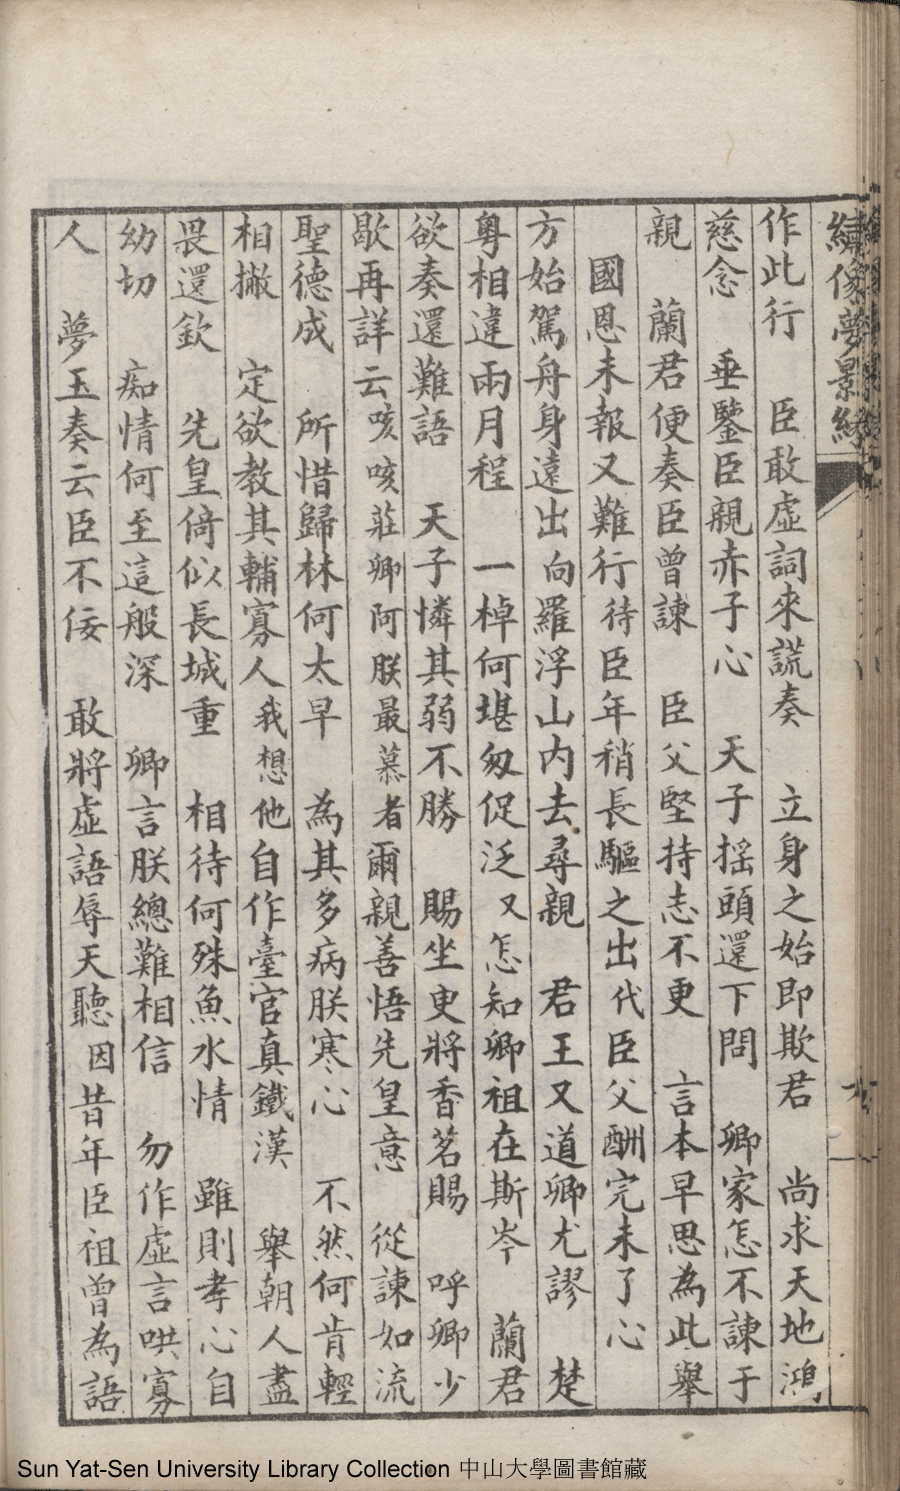 繡像夢景緣
作此行　臣敢虛詞來謊奏　立身之始即欺君　尚求天地鴻
慈念　垂鑒臣親赤子心　天子搖頭還下問　卿家怎不諫于
親　蘭君便奏臣曾諫　臣父堅持志不更　言本早思為此舉
國恩未報又難行待臣年稍長驅之出代臣父酬完未了心
方始駕舟身遠出向羅浮山內去尋親　君王又道卿尤謬　楚
粵相違兩月程　一棹何堪匆促泛又怎知卿祖在斯岑　蘭君
欲奏還難語　天子憐其弱不勝　賜坐更將香茗賜　呼卿少
歇再詳云咳咳莊卿阿朕最慕者爾親善悟先皇意　從諫如流
聖德成　所惜歸林何太早　為其多病朕寒心　不然何肯輕
相撇　定欲教其輔寡人我想他自作臺官真鐵漢　舉朝人盡
畏還欽　先皇倚似長城重　相待何殊魚水情　雖則孝心自
幼切　痴情何至這般深　卿言朕總難相信　勿作虛言哄寡
人　夢玉奏云臣不佞　敢將虛語辱天聽因昔年臣祖曾為語
Sun Yat-Sen University Library Collection 中山大學圖書館藏